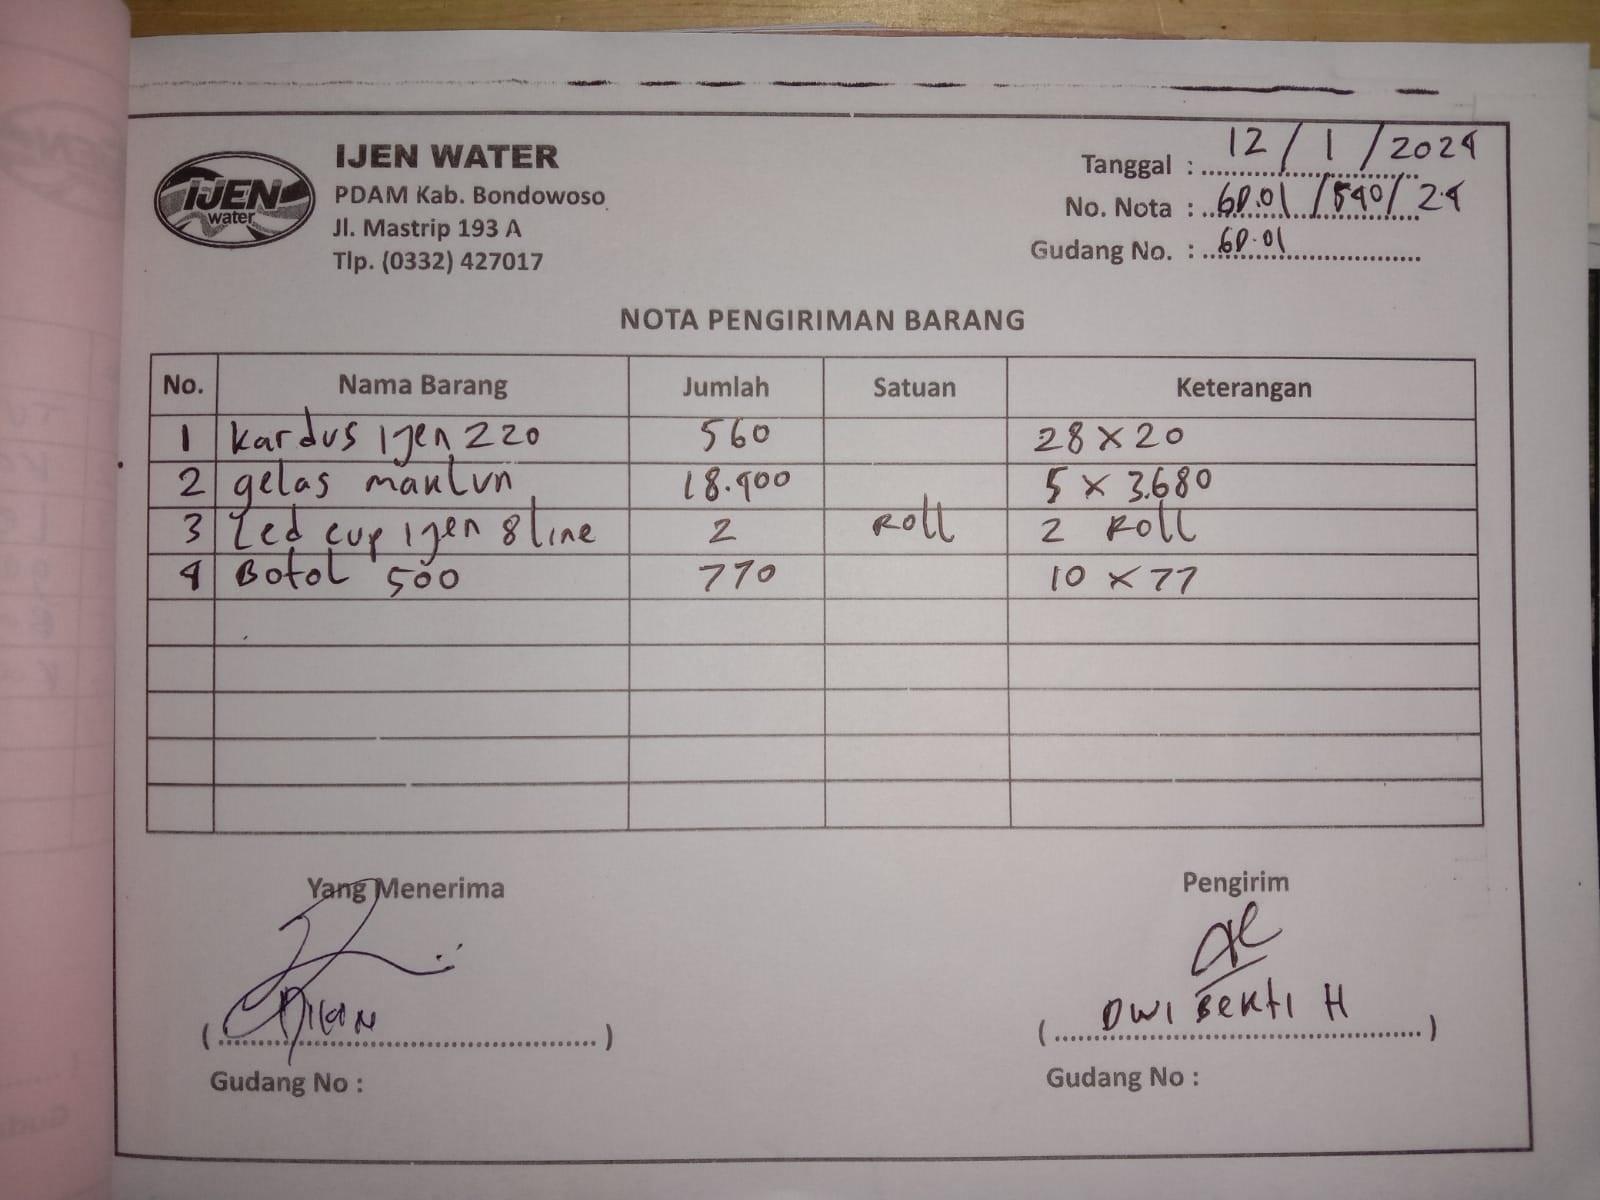 IJEN water
IJEN WATER
PDAM Kab. Bondowoso
Jl. Mastrip 193 A
Tlp. (0332) 427017
Tanggal : 12 / 1 / 2024
No. Nota : 6D.01 / 540 / 24
Gudang No. : 6D.01
NOTA PENGIRIMAN BARANG
No. Nama Barang Jumlah Satuan Keterangan
1 Kardus Ijen 220 560 28 x 20
2 gelas maklun 18.400 5 x 3.680
3 Led cup Ijen 8 line 2 Roll 2 Roll
4 Botol 500 770 10 x 77
Yang Menerima
Pengirim
DWI BEKTI H
Gudang No :
Gudang No :